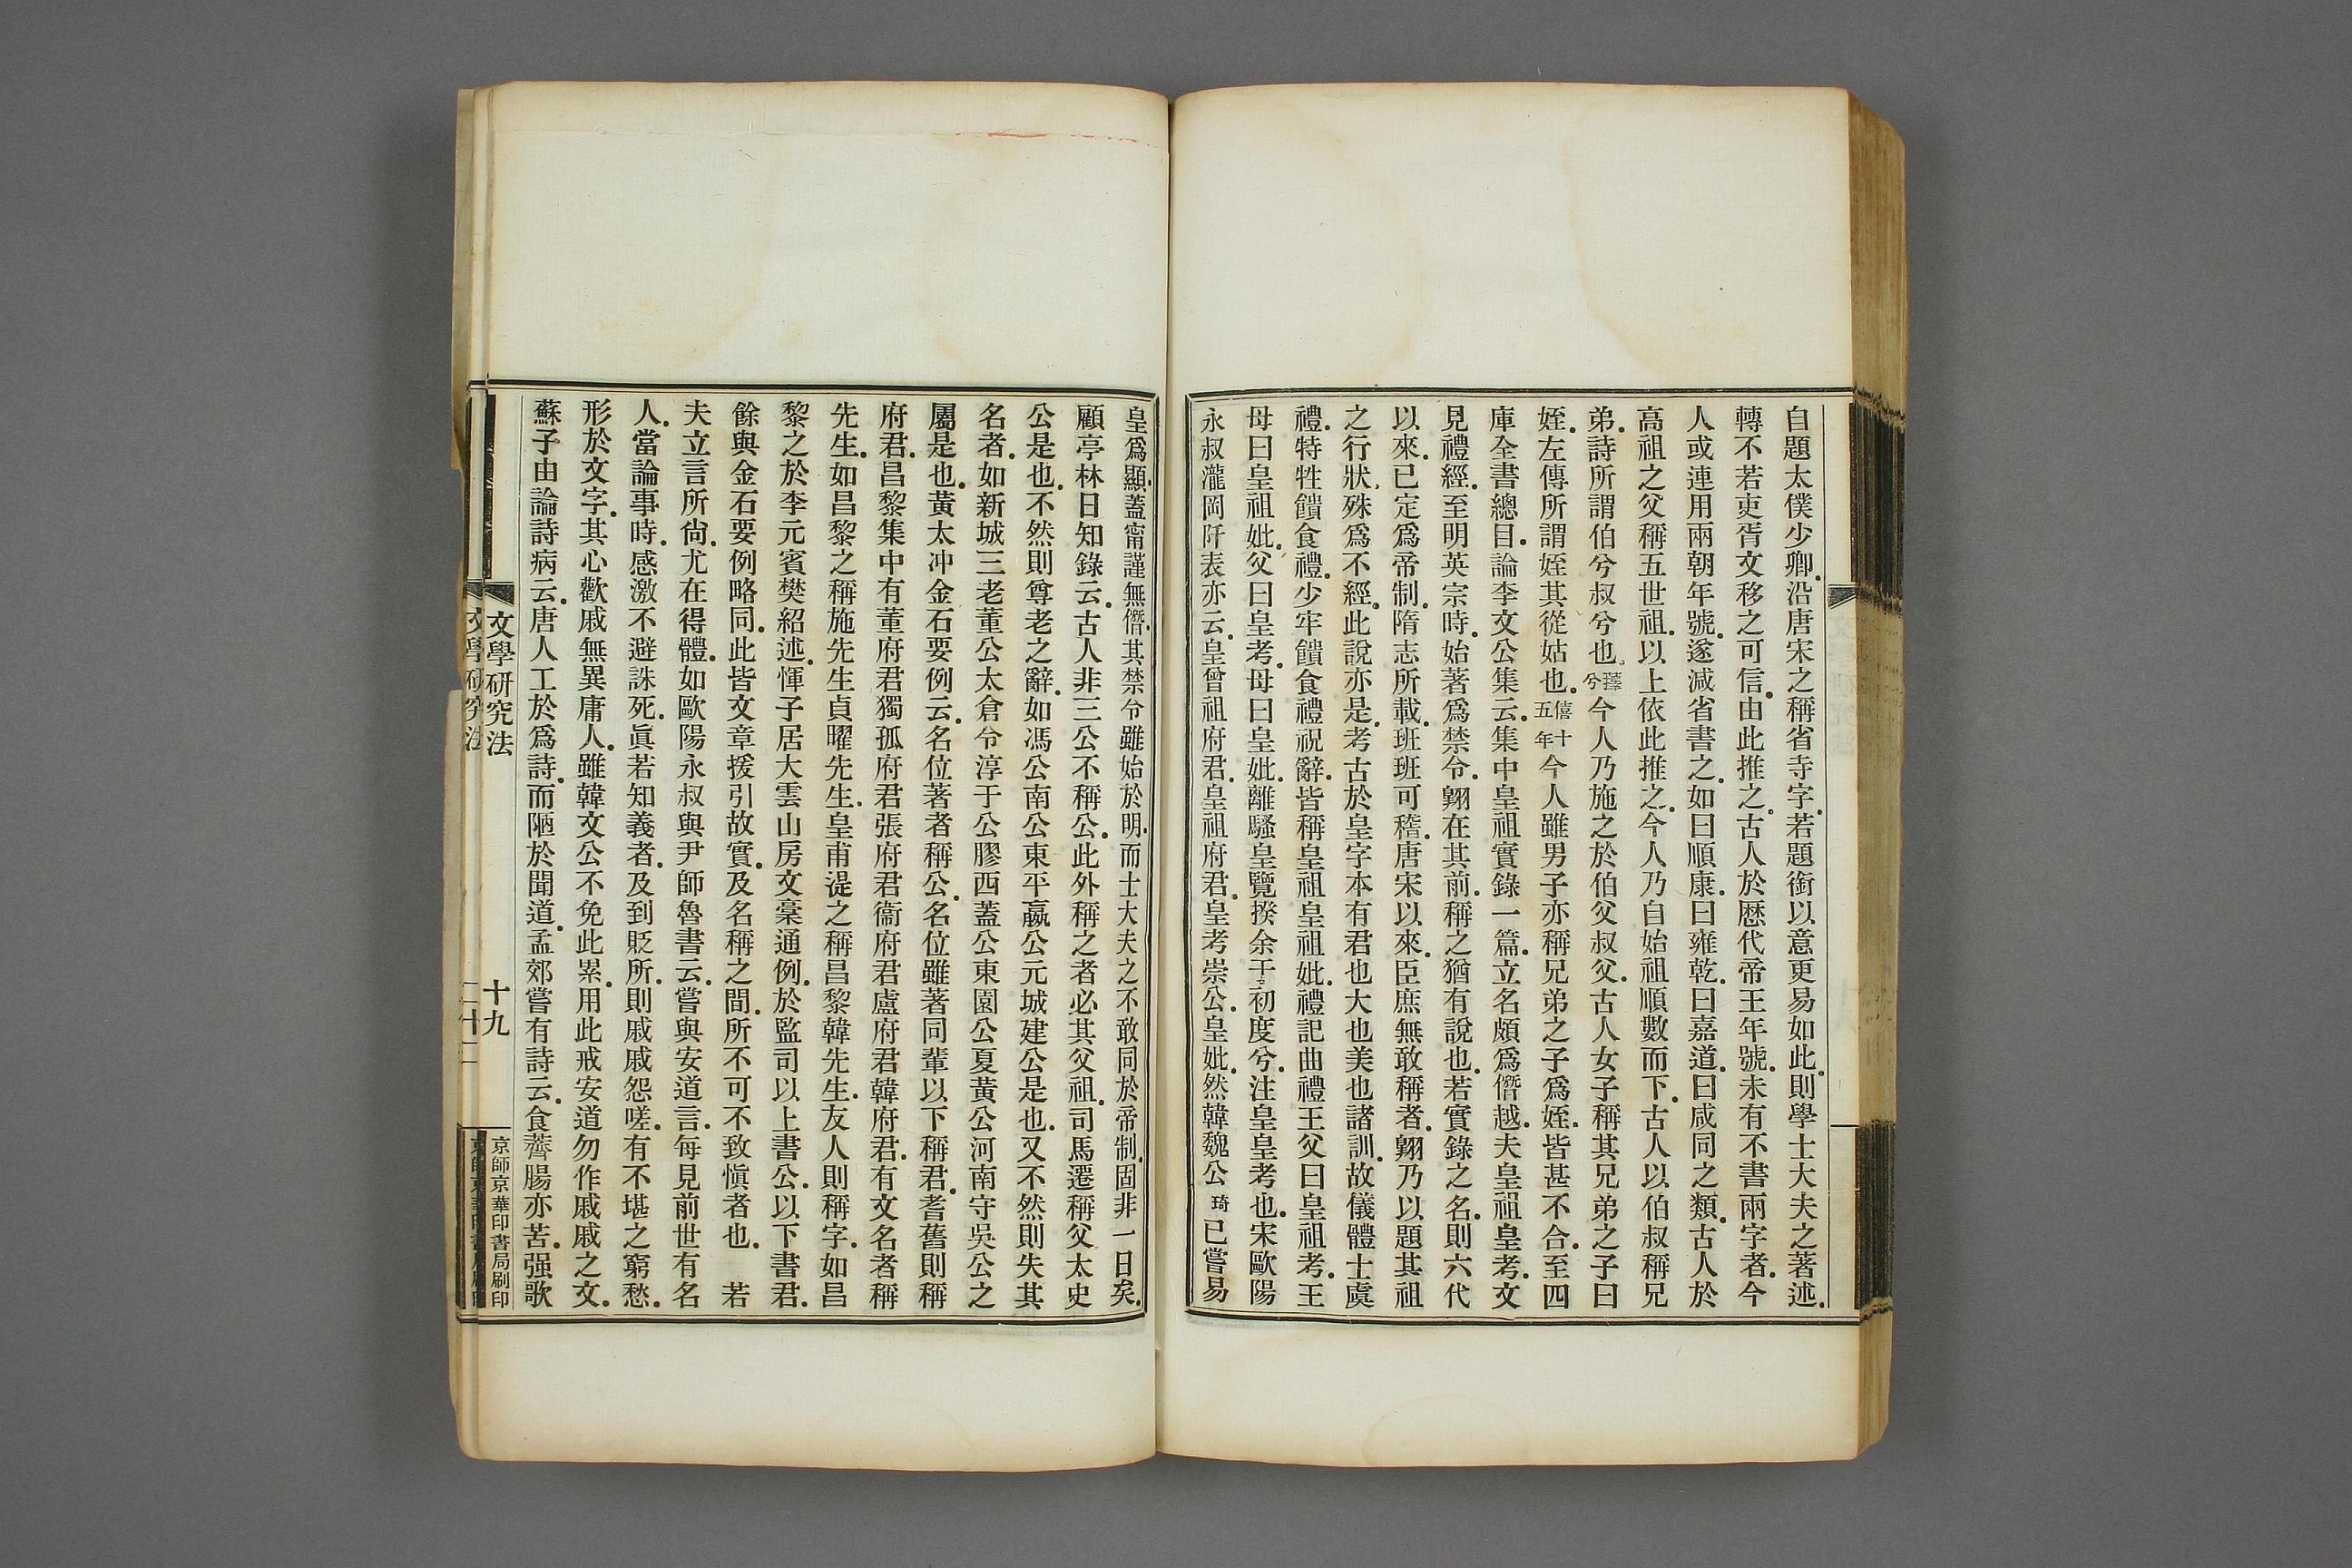 自題太僕少卿.沿唐宋之稱省寺字.若題銜以意更易如此.則學士大夫之著述.
轉不若吏胥文移之可信.由此推之.古人於歷代帝王年號.未有不書兩字者.今
人或連用兩朝年號.遂減省書之.如曰順康.曰雍乾.曰嘉道.曰咸同之類.古人於
高祖之父稱五世祖.以上依此推之.今人乃自始祖順數而下.古人以伯叔稱兄
弟.詩所謂伯兮叔兮也.蘀兮今人乃施之於伯父叔父.古人女子稱其兄弟之子曰
姪.左傳所謂姪其從姑也.僖十五年今人雖男子亦稱兄弟之子爲姪.皆甚不合.至四
庫全書總目.論李文公集云.集中皇祖實錄一篇.立名頗爲僭越.夫皇祖皇考.文
見禮經.至明英宗時.始著爲禁令.翺在其前.稱之猶有說也.若實錄之名.則六代
以來.已定爲帝制.隋志所載.班班可稽.唐宋以來.臣庶無敢稱者.翺乃以題其祖
之行狀.殊爲不經.此說亦是.考古於皇字本有君也大也美也諸訓.故儀體士虞
禮.特牲饋食禮.少牢饋食禮祝辭.皆稱皇祖皇祖妣.禮記曲禮王父曰皇祖考.王
母曰皇祖妣.父曰皇考.母曰皇妣.離騷皇覽揆余于初度兮.注皇皇考也.宋歐陽
永叔瀧岡阡表亦云.皇曾祖府君.皇祖府君.皇考崇公.皇妣.然韓魏公琦已嘗易
皇爲顯.蓋甯謹無僭.其禁令雖始於明.而士大夫之不敢同於帝制.固非一日矣.
顧亭林日知錄云.古人非三公不稱公.此外稱之者必其父祖.司馬遷稱父太史
公是也.不然則尊老之辭.如馮公南公東平嬴公元城建公是也.又不然則失其
名者.如新城三老董公太倉令淳于公膠西蓋公東園公夏黃公河南守吳公之
屬是也.黃太冲金石要例云.名位著者稱公.名位雖著同輩以下稱君.耆舊則稱
府君.昌黎集中有董府君獨孤府君張府君衞府君盧府君韓府君.有文名者稱
先生.如昌黎之稱施先生貞曜先生.皇甫湜之稱昌黎韓先生.友人則稱字.如昌
黎之於李元賓樊紹述.惲子居大雲山房文稾通例.於監司以上書公.以下書君.
餘與金石要例略同.此皆文章援引故實.及名稱之間.所不可不致愼者也.　若
夫立言所尙.尤在得體.如歐陽永叔與尹師魯書云.嘗與安道言.每見前世有名
人.當論事時.感激不避誅死.眞若知義者.及到貶所.則戚戚怨嗟.有不堪之窮愁.
形於文字.其心歡戚無異庸人.雖韓文公不免此累.用此戒安道勿作戚戚之文.
蘇子由論詩病云.唐人工於爲詩.而陋於聞道.孟郊嘗有詩云.食薺腸亦苦.强歌
文學研究法
十九
京師京華印書局刷印
文學研究法